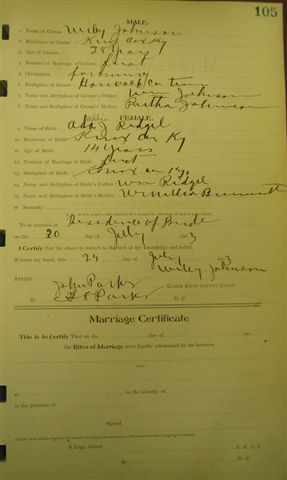 105
MALE.
1. Name of Groom Wiley Johnson
2. Residence of Groom Knox Co Ky
3. Age of Groom 28 Years
4. Number of Marriage of Groom first
5. Occupation farming
6. Birthplace of Groom Hancock Co Tenn
7. Name and Birthplace of Groom's Father Johnson
8. Name and Birthplace of Groom's Mother Johnson
FEMALE.
9. Name of Bride Ada J Ridgel
10. Residence of Bride Knox Co Ky
11. Age of Bride 14 Years
12. Number of Marriage of Bride first
13. Birthplace of Bride Knox Co Ky
14. Name and Birthplace of Bride's Father Wm Ridgel
15. Name and Birthplace of Bride's Mother
16. Remarks
To be married at Residence of Bride
on the 30 day of July 1903
I Certify that the above is correct to the best of my knowledge and belief.
Witness my hand, this 29 day of July 1903
Wiley Johnson
Attest:
John Parker Clerk Knox County Court.
By Parker D. C.
Marriage Certificate
This is to Certify That on the day of
the Rites of Marriage were legally solemnized by me between
and
at in the County of
in the presence of
Signed,
A Copy Attest: C. K. C. C.
By D. C.